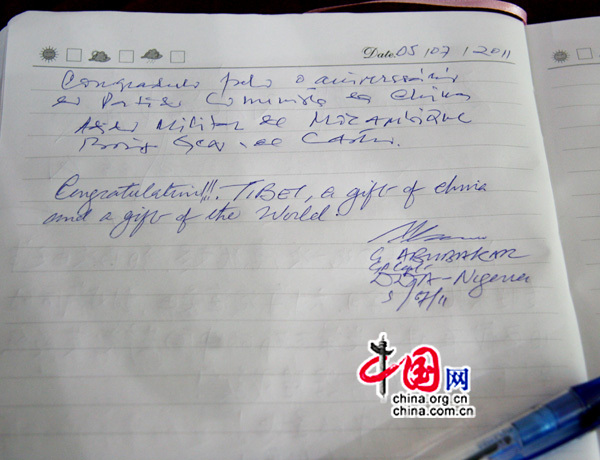 Date 05 / 07 / 2011
pelo o aniversário
do Partido Comunista da China
Adido Militar de Moçambique
de Castro.
Congratulation!!!. TIBET, a gift of china
and a gift of the World.
G ABUBAKAR
DDA-Nigeria
5/7/11
中国网
china.org.cn
china.com.cn